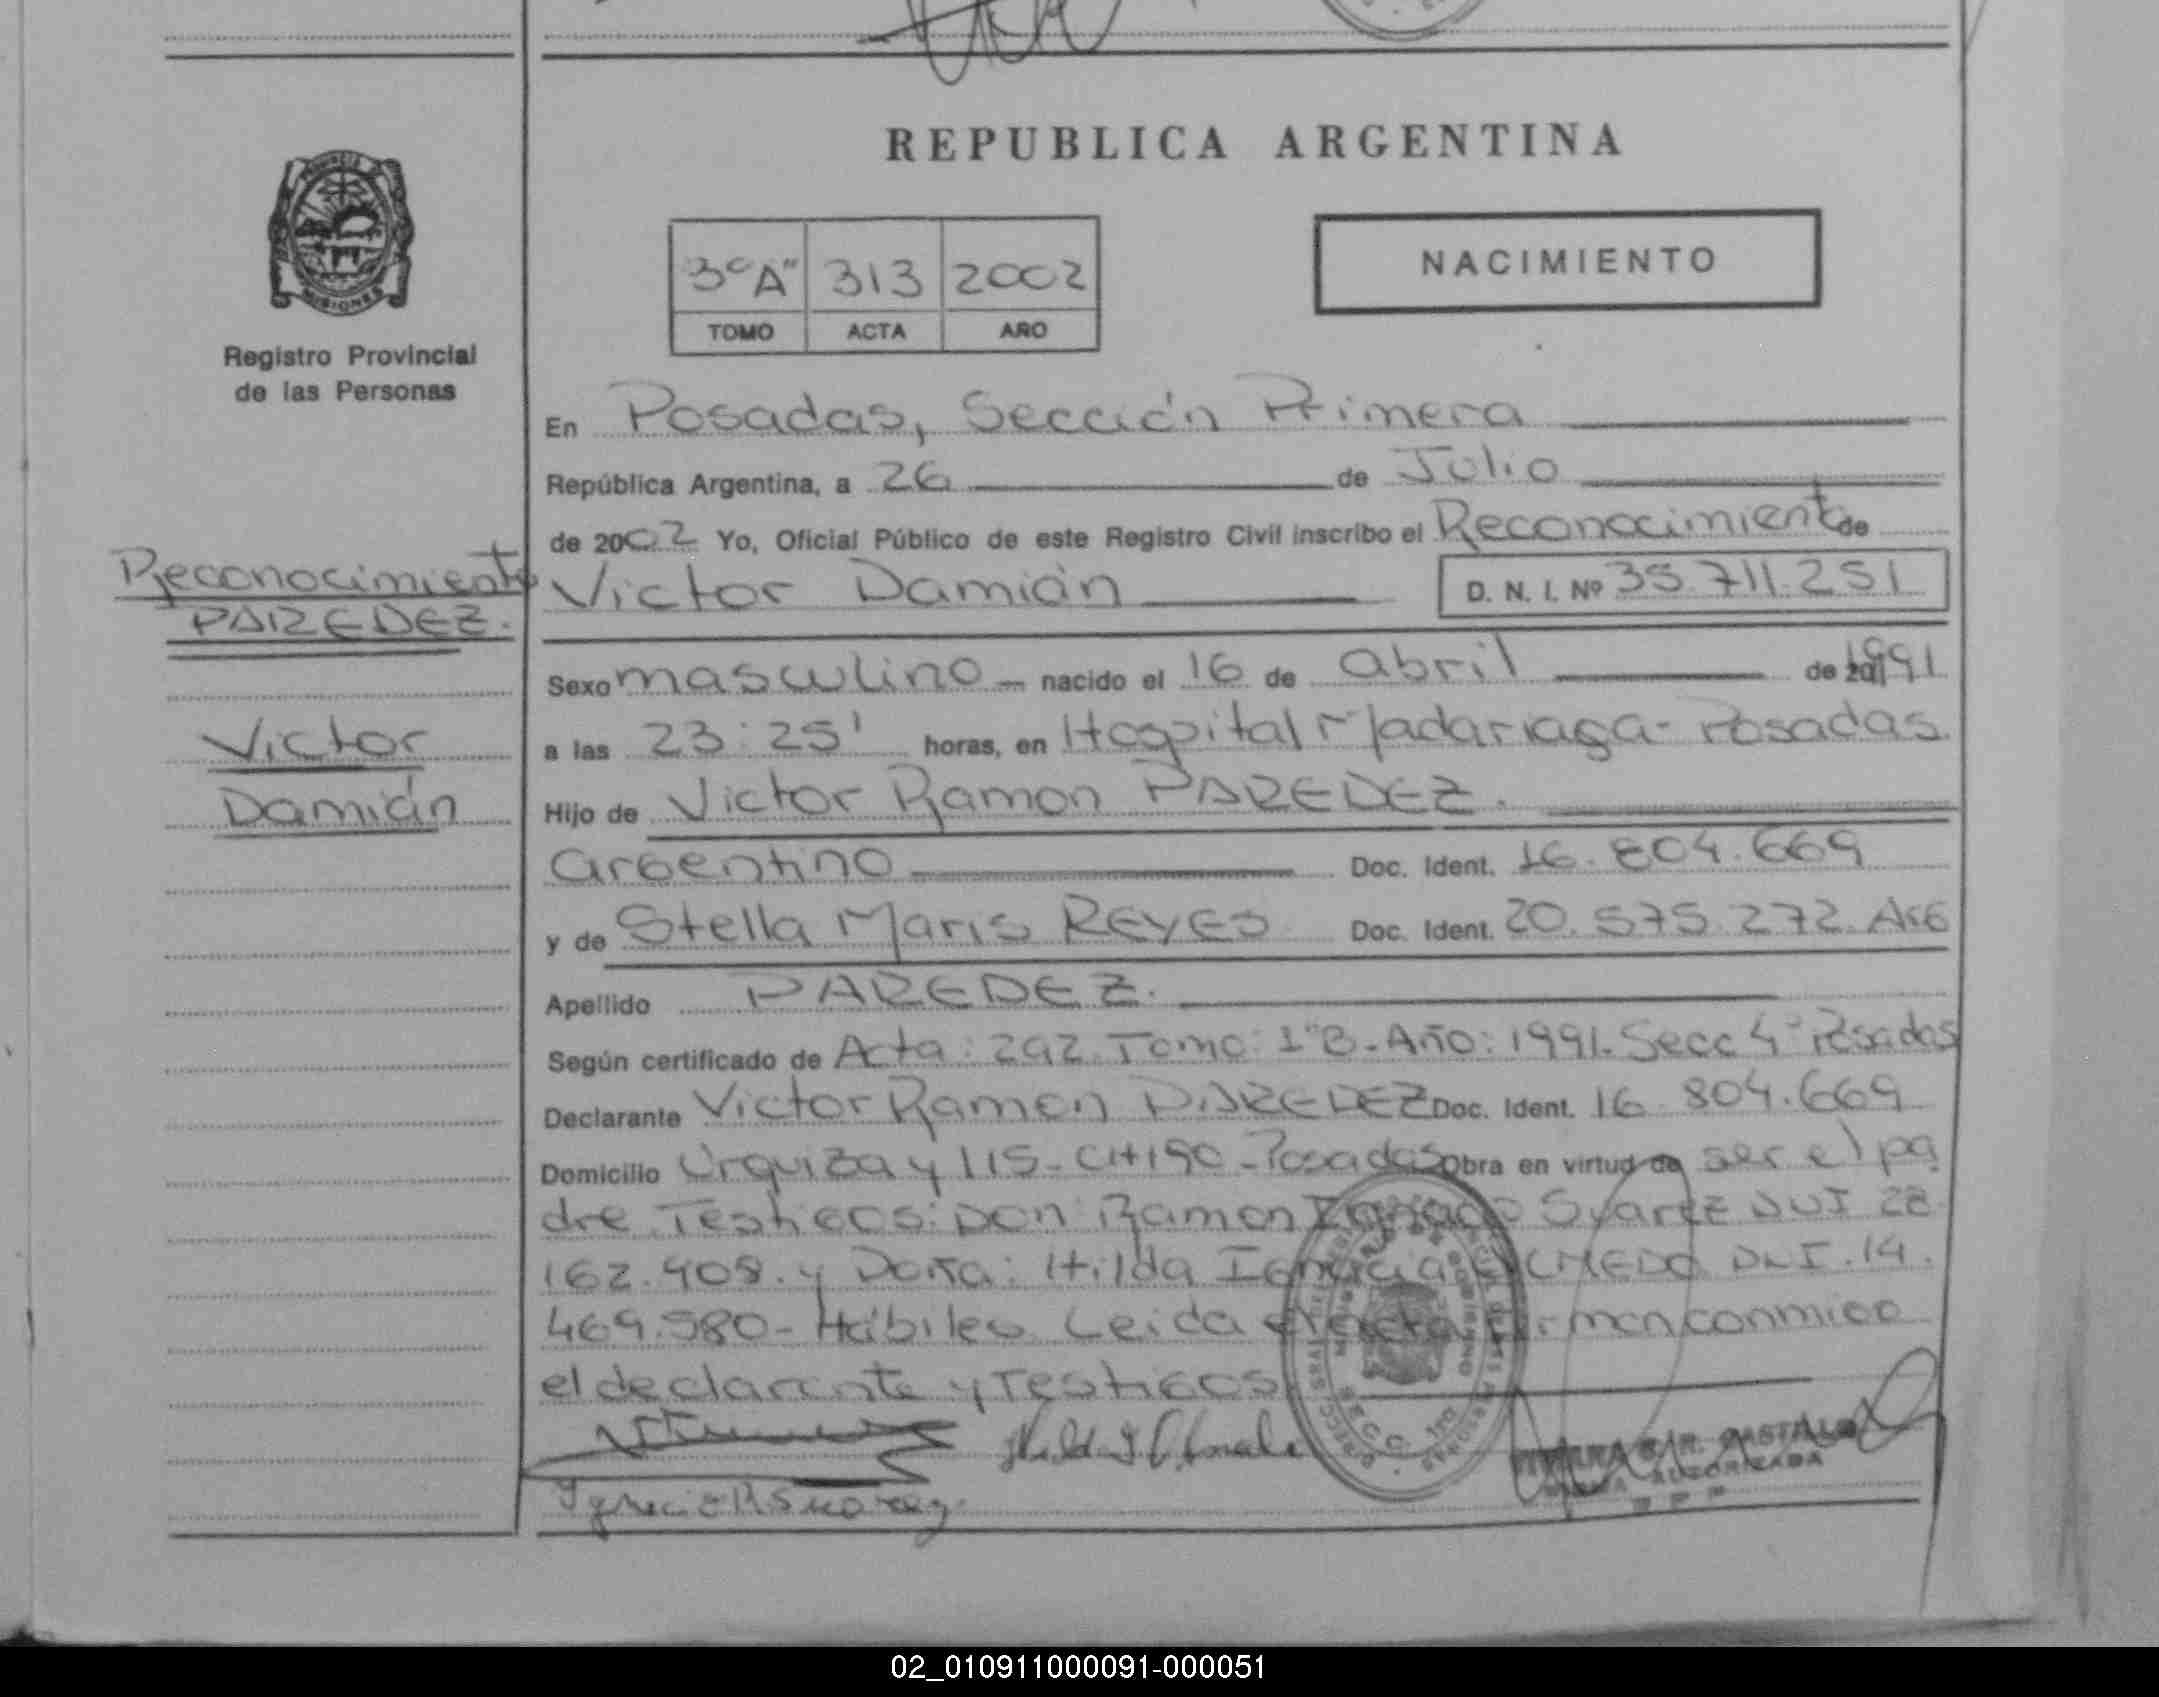 REPUBLICA ARGENTINA
PROVINCIA
MISIONES
Registro Provincial
de las Personas
3º"A" 313 2002
TOMO ACTA AÑO
NACIMIENTO
En Posadas, Sección Primera
República Argentina, a 26 de Julio
de 2002 Yo, Oficial Público de este Registro Civil inscribo el Reconocimiento de
Victor Damián D. N. I. Nº 35.711.251
Reconocimiento
PAREDEZ.
Victor
Damián
Sexo masculino nacido el 16 de abril de 1991
a las 23:25' horas, en Hospital Madariaga - Posadas.
Hijo de Victor Ramon PAREDEZ.
argentino Doc. Ident. 16.804.669
y de Stella Maris REYES Doc. Ident. 20.575.272. Arg
Apellido PAREDEZ.
Según certificado de Acta: 292 Tomo: 1º"B - Año: 1991. Secc 4º Posadas
Declarante Victor Ramon PAREDEZ Doc. Ident. 16.804.669
Domicilio Urquiza y 115 - CH190 - Posadas Obra en virtud de ser el pa
dre. Testigos: Don Ramon Ignacio Suarez DNI 28
162.408. y Doña: Hilda Ignacia DNI. 14.
469.580 - Hábiles Leida el acta firman conmigo
el declarante y Testigos
CASTILLO
AUTORIZADA
02_010911000091-000051